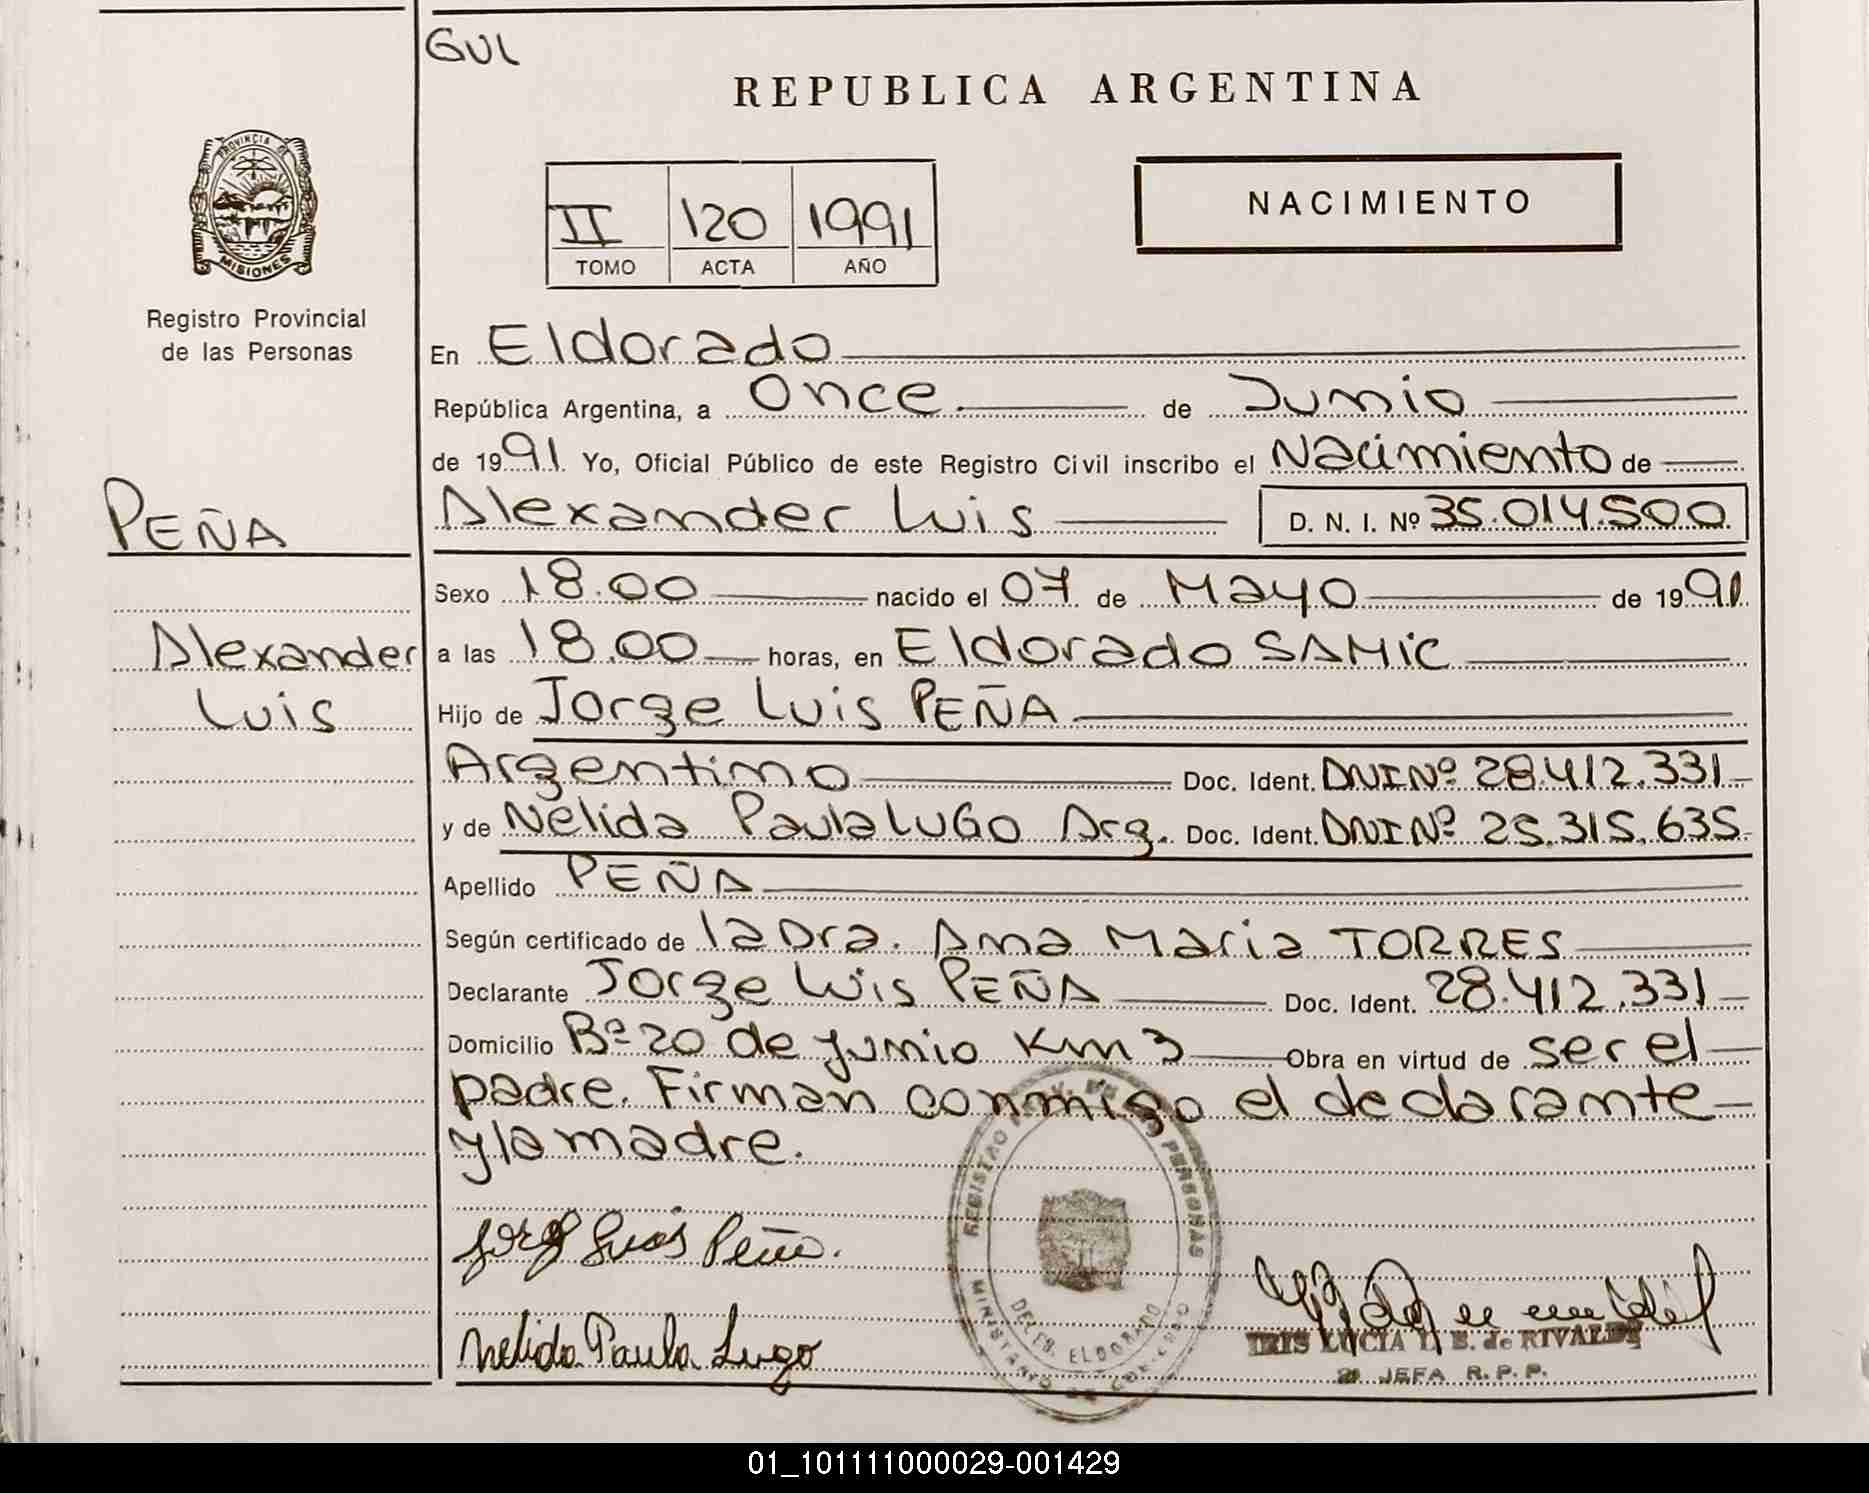 GUL
REPUBLICA ARGENTINA
PROVINCIA DE
MISIONES
II 120 1991
TOMO ACTA AÑO
NACIMIENTO
Registro Provincial
de las Personas
En Eldorado
República Argentina, a Once de Junio
de 1991 Yo, Oficial Público de este Registro Civil inscribo el Nacimiento de
PEÑA
Alexander Luis D. N. I. Nº 35.014.500
Sexo 18.00 nacido el 07 de Mayo de 1991
Alexander
Luis
a las 18.00 horas, en Eldorado SAMIC
Hijo de Jorge Luis PEÑA
Argentino Doc. Ident. DNI Nº 28.412.331
y de Nelida Paula LUGO Arg. Doc. Ident. DNI Nº 25.315.635
Apellido PEÑA
Según certificado de la Dra. Ana Maria TORRES
Declarante Jorge Luis PEÑA Doc. Ident. 28.412.331
Domicilio Bº 20 de junio Km 3 Obra en virtud de ser el
padre. Firman conmigo el declarante
y la madre.
Jorge Luis Peña.
Nelida Paula Lugo
REGISTRO PERSONAS
DELEG. ELDORADO
IRIS LUCIA de RIVALDI
JEFA R. P. P.
01_101111000029-001429